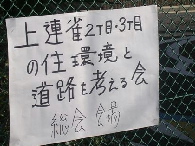 上連雀2丁目・3丁目
の住環境と
道路を考える会
総会会場